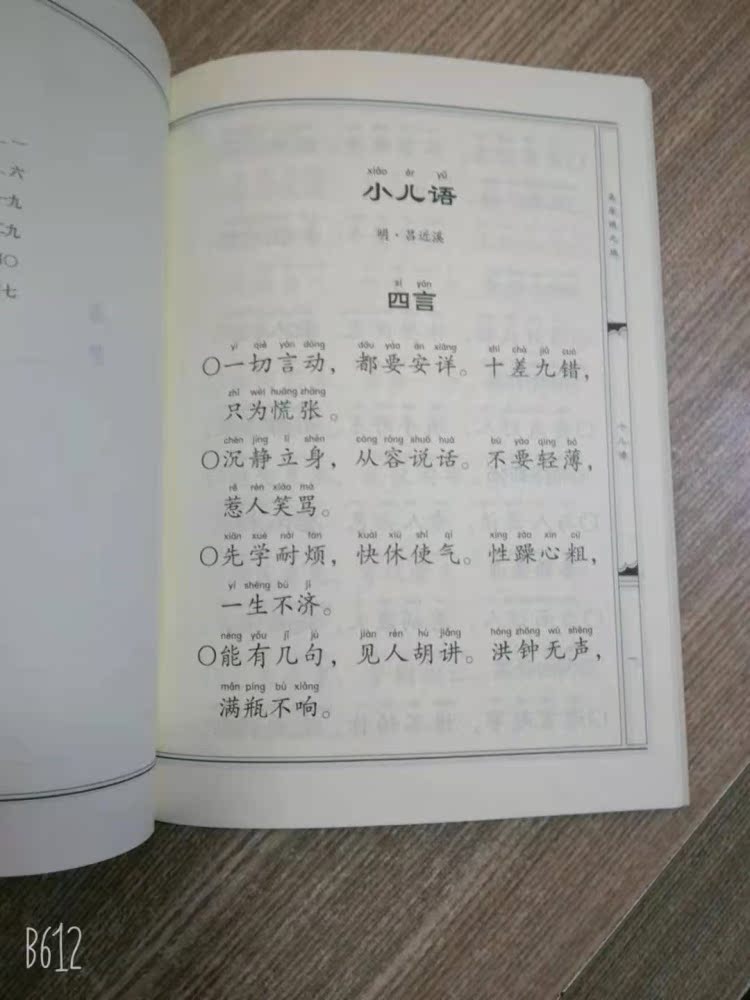 xiǎo ér yǔ
小儿语
明·吕近溪
sì yán
四言
yí qiè yán dòng dōu yào ān xiáng shí chā jiǔ cuò
○一切言动，都要安详。十差九错，
zhǐ wèi huāng zhāng
只为慌张。
chén jìng lì shēn cóng róng shuō huà bú yào qīng bó
○沉静立身，从容说话。不要轻薄，
rě rén xiào mà
惹人笑骂。
xiān xué nài fán kuài xiū shǐ qì xìng zào xīn cū
○先学耐烦，快休使气。性躁心粗，
yì shēng bú jì
一生不济。
néng yǒu jǐ jù jiàn rén hú jiǎng hóng zhōng wú shēng
○能有几句，见人胡讲。洪钟无声，
mǎn píng bù xiǎng
满瓶不响。
一
六
九
九
〇
七
B612